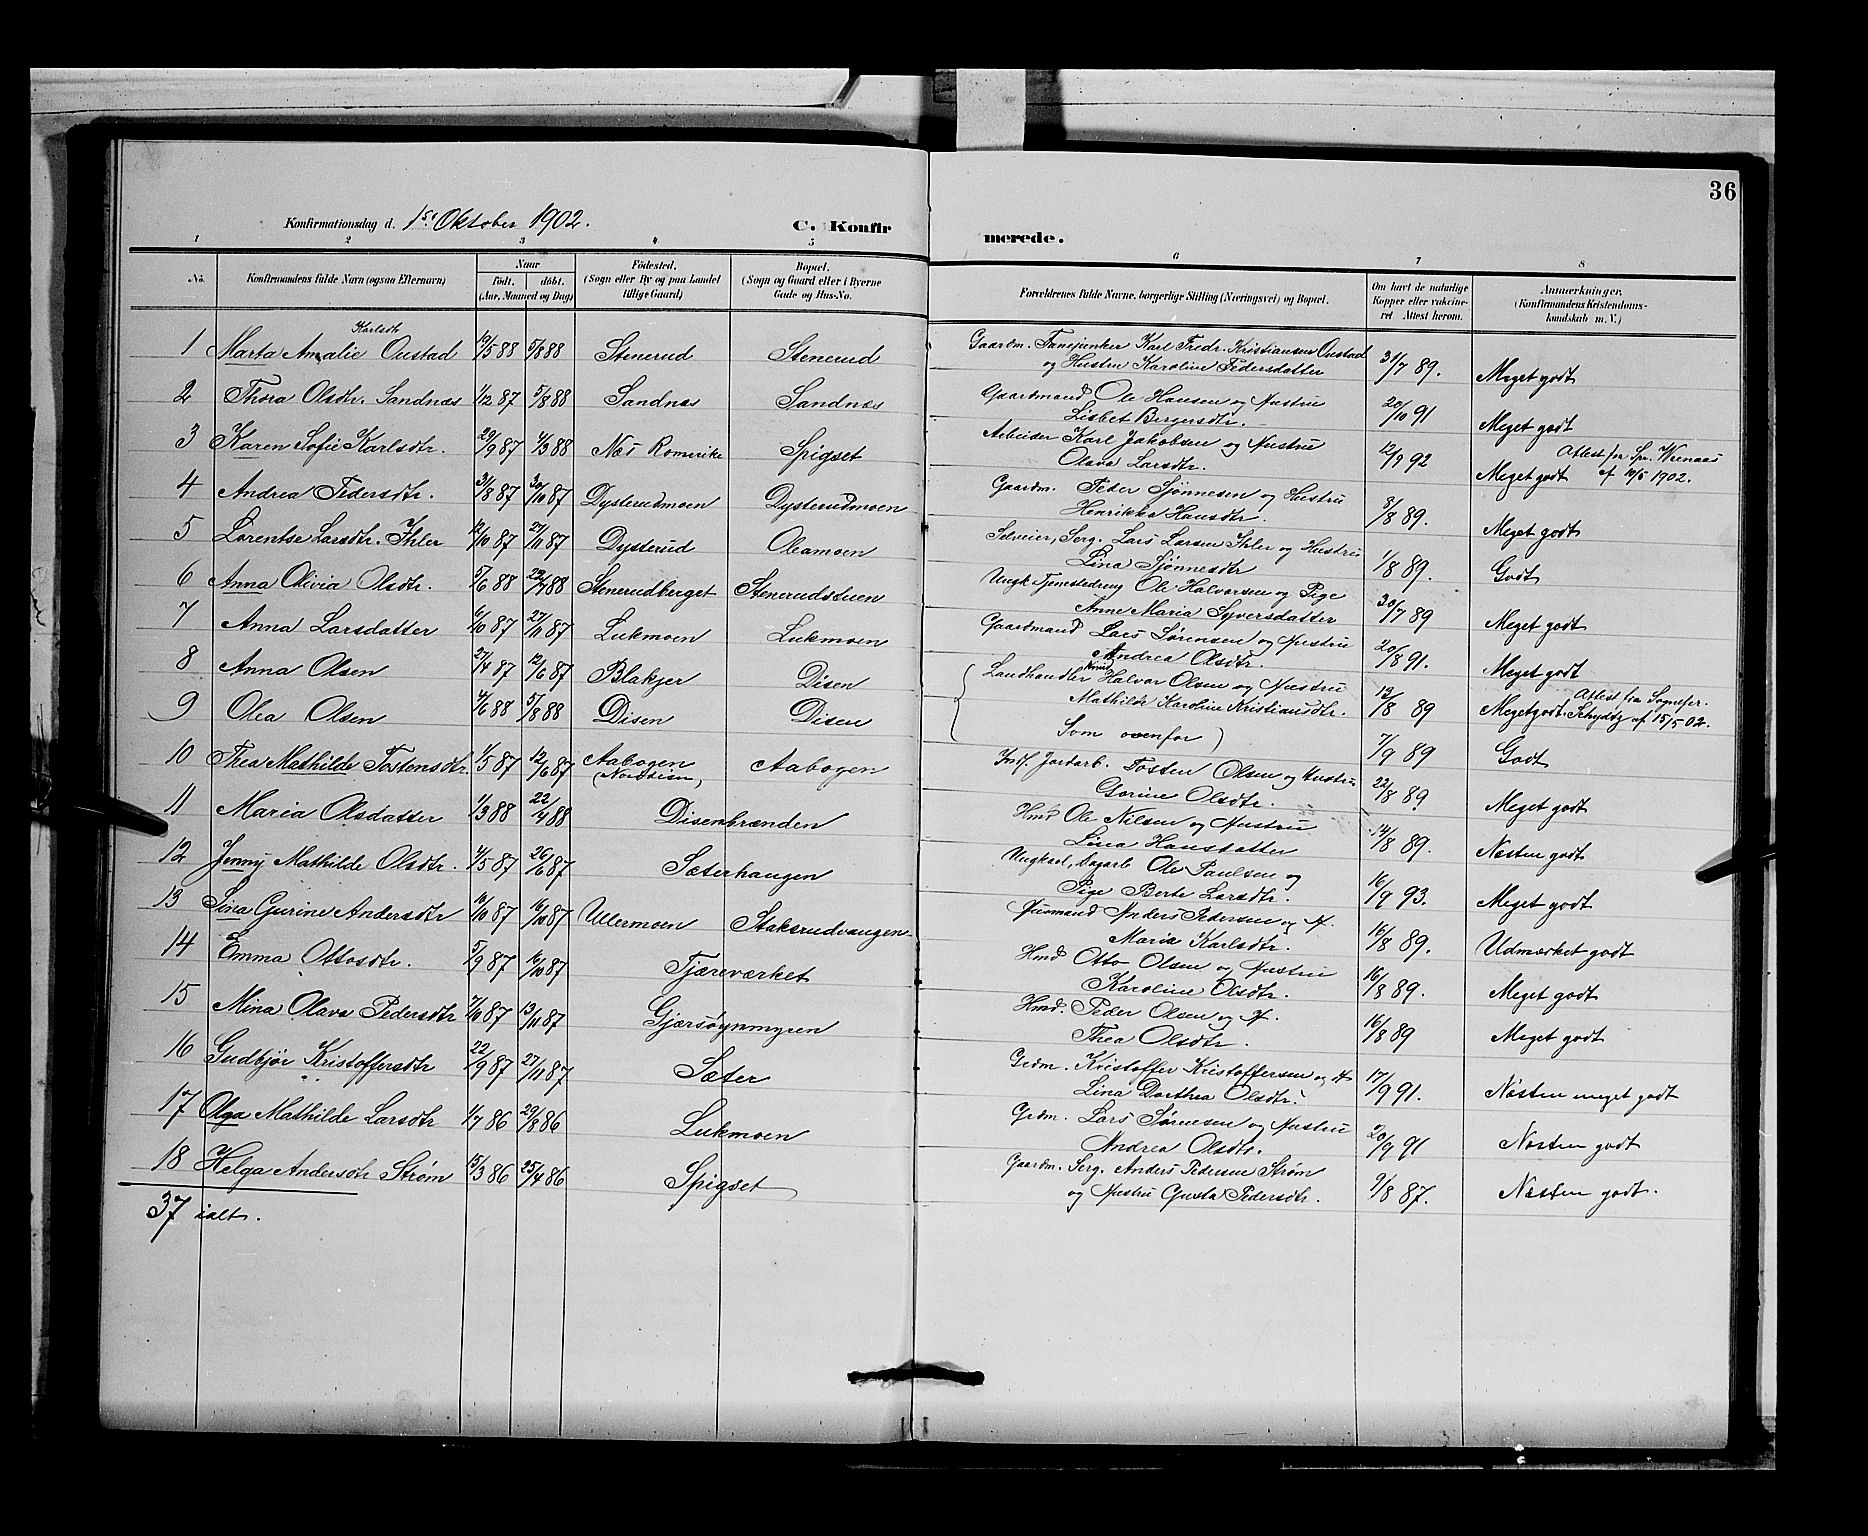 36
Konfirmationsdag d. 1ste Oktober 1902. C. Konfirmerede.
1 2 3 4 5 6 7 8
No. Konfirmandens fulde Navn (ogsaa Efternavn) Naar født. døbt. (Aar, Maaned og Dag) Fødested. (Sogn eller By og paa Landet tillige Gaard) Bopæl. (Sogn og Gaard eller i Byerne Gade og Hus-No. Forældrenes fulde Navne, borgerlige Stilling (Næringsvei) og Bopæl. Om havt de naturlige Kopper eller vakcineret Attest herom. Anmærkninger. (Konfirmandens Kristendomskundskab m. V.)
Karlsdtr
1 Marta Amalie Oustad 19/5 88 5/8 88 Stenerud Stenerud Gaardm. Fanejunker Karl Fredr. Kristiansen Oustad
og Hustru Karoline Pedersdatter 31/7 89. Meget godt
2 Thora Olsdtr. Sandnæs 1/12 87 5/8 88 Sandnæs Sandnæs Gaardmand Ole Hansen og Hustru
Lisbet Bergersdtr. 20/10 91 Meget godt
3 Karen Sofie Karlsdtr. 29/9 87 4/3 88 Næs Romerike Spigset Arbeider Karl Jakobsen og Hustru
Olava Larsdtr. 12/9 92 Meget godt Attest fra Spr. Wrenaas
af 10/5 1902.
4 Andrea Pedersdtr. 31/8 87 30/10 87 Dysterudmoen Dysterudmoen Gaardm. Peder Sjønnesen og Hustru
Henrikka Hansdtr. 8/8 89. Meget godt
5 Lorentse Larsdtr. Ihler 12/10 87 27/11 87 Dysterud Oleamoen Selveier, Serg. Lars Larsen Ihler og Hustru
Lina Sjønnesdtr 1/8 89. Godt
6 Anna Olivia Olsdtr. 5/6 88 22/7 88 Stenerudberget Stenerudstuen Ungk. Tjenestedreng Ole Halvorsen og Pige
Anne Maria Syversdatter 30/7 89 Meget godt
7 Anna Larsdatter 6/10 87 27/11 87 Lukmoen Lukmoen Gaardmand Lars Sørensen og Hustru
Andrea Olsdtr. 20/8 91. Meget godt
8 Anna Olsen 27/4 87 12/6 87 Blakjer Disen Landhandler Knud Halvor Olsen og Hustru
Mathilde Karoline Kristiansdtr. 13/8 89 Meget godt. Attest fra Sognepr.
Schydtz af 15/5 02.
9 Olea Olsen 4/6 88 5/8 88 Disen Disen Som ovenfor 7/9 89 Godt
10 Thea Mathilde Tostensdtr. 1/5 87 12/6 87 Aabogen Aabogen Indf. Jordarb. Tosten Olsen og Hustru
Gorine Olsdtr. 22/8 89 Meget godt
11 Maria Olsdatter 1/3 88 22/4 88 Disenbrænden Hmd Ole Nilsen og Hustru
Lina Hansdatter 14/8 89. Næsten godt
12 Jenny Mathilde Olsdtr. 4/5 87 26/6 87 Sæterhaugen Ungkael, Dagarb. Ole Paulsen og
Pige Berte Larsdtr. 16/9 93. Meget godt
13 Sina Gurine Andersdtr 10/10 87 16/10 87 Ullermoen Staksrudvangen Husmand Anders Pedersen og H.
Maria Karlsdtr. 16/8 89. Udmærket godt
14 Emma Ottosdtr. 5/9 87 16/10 87 Tjæreværket Hmd Otto Olsen og Hustru
Karoline Olsdtr. 16/8 89. Meget godt
15 Mina Olava Pedersdtr 7/10 87 13/11 87 Gjærsøynmyren Hmd. Peder Olsen og H.
Thea Olsdtr. 16/8 89 Meget godt
16 Gudbjør Kristoffersdtr 22/9 87 27/11 87 Sæter Grdm. Kristoffer Kristoffersen og H
Lina Dorthea Olsdtr. 17/9 91. Næsten meget godt
17 Olga Mathilde Larsdtr 1/7 86 29/8 86 Lukmoen Grdm. Lars Sørensen og Hustru
Andrea Olsdtr. 20/9 91 Næsten godt
18 Helga Andersdtr Strøm 15/3 86 25/4 86 Spigset Gaardm. Serg. Anders Pedersen Strøm
og Hustru Gusta Pedersdtr. 9/8 87. Næsten godt.
37 ialt.